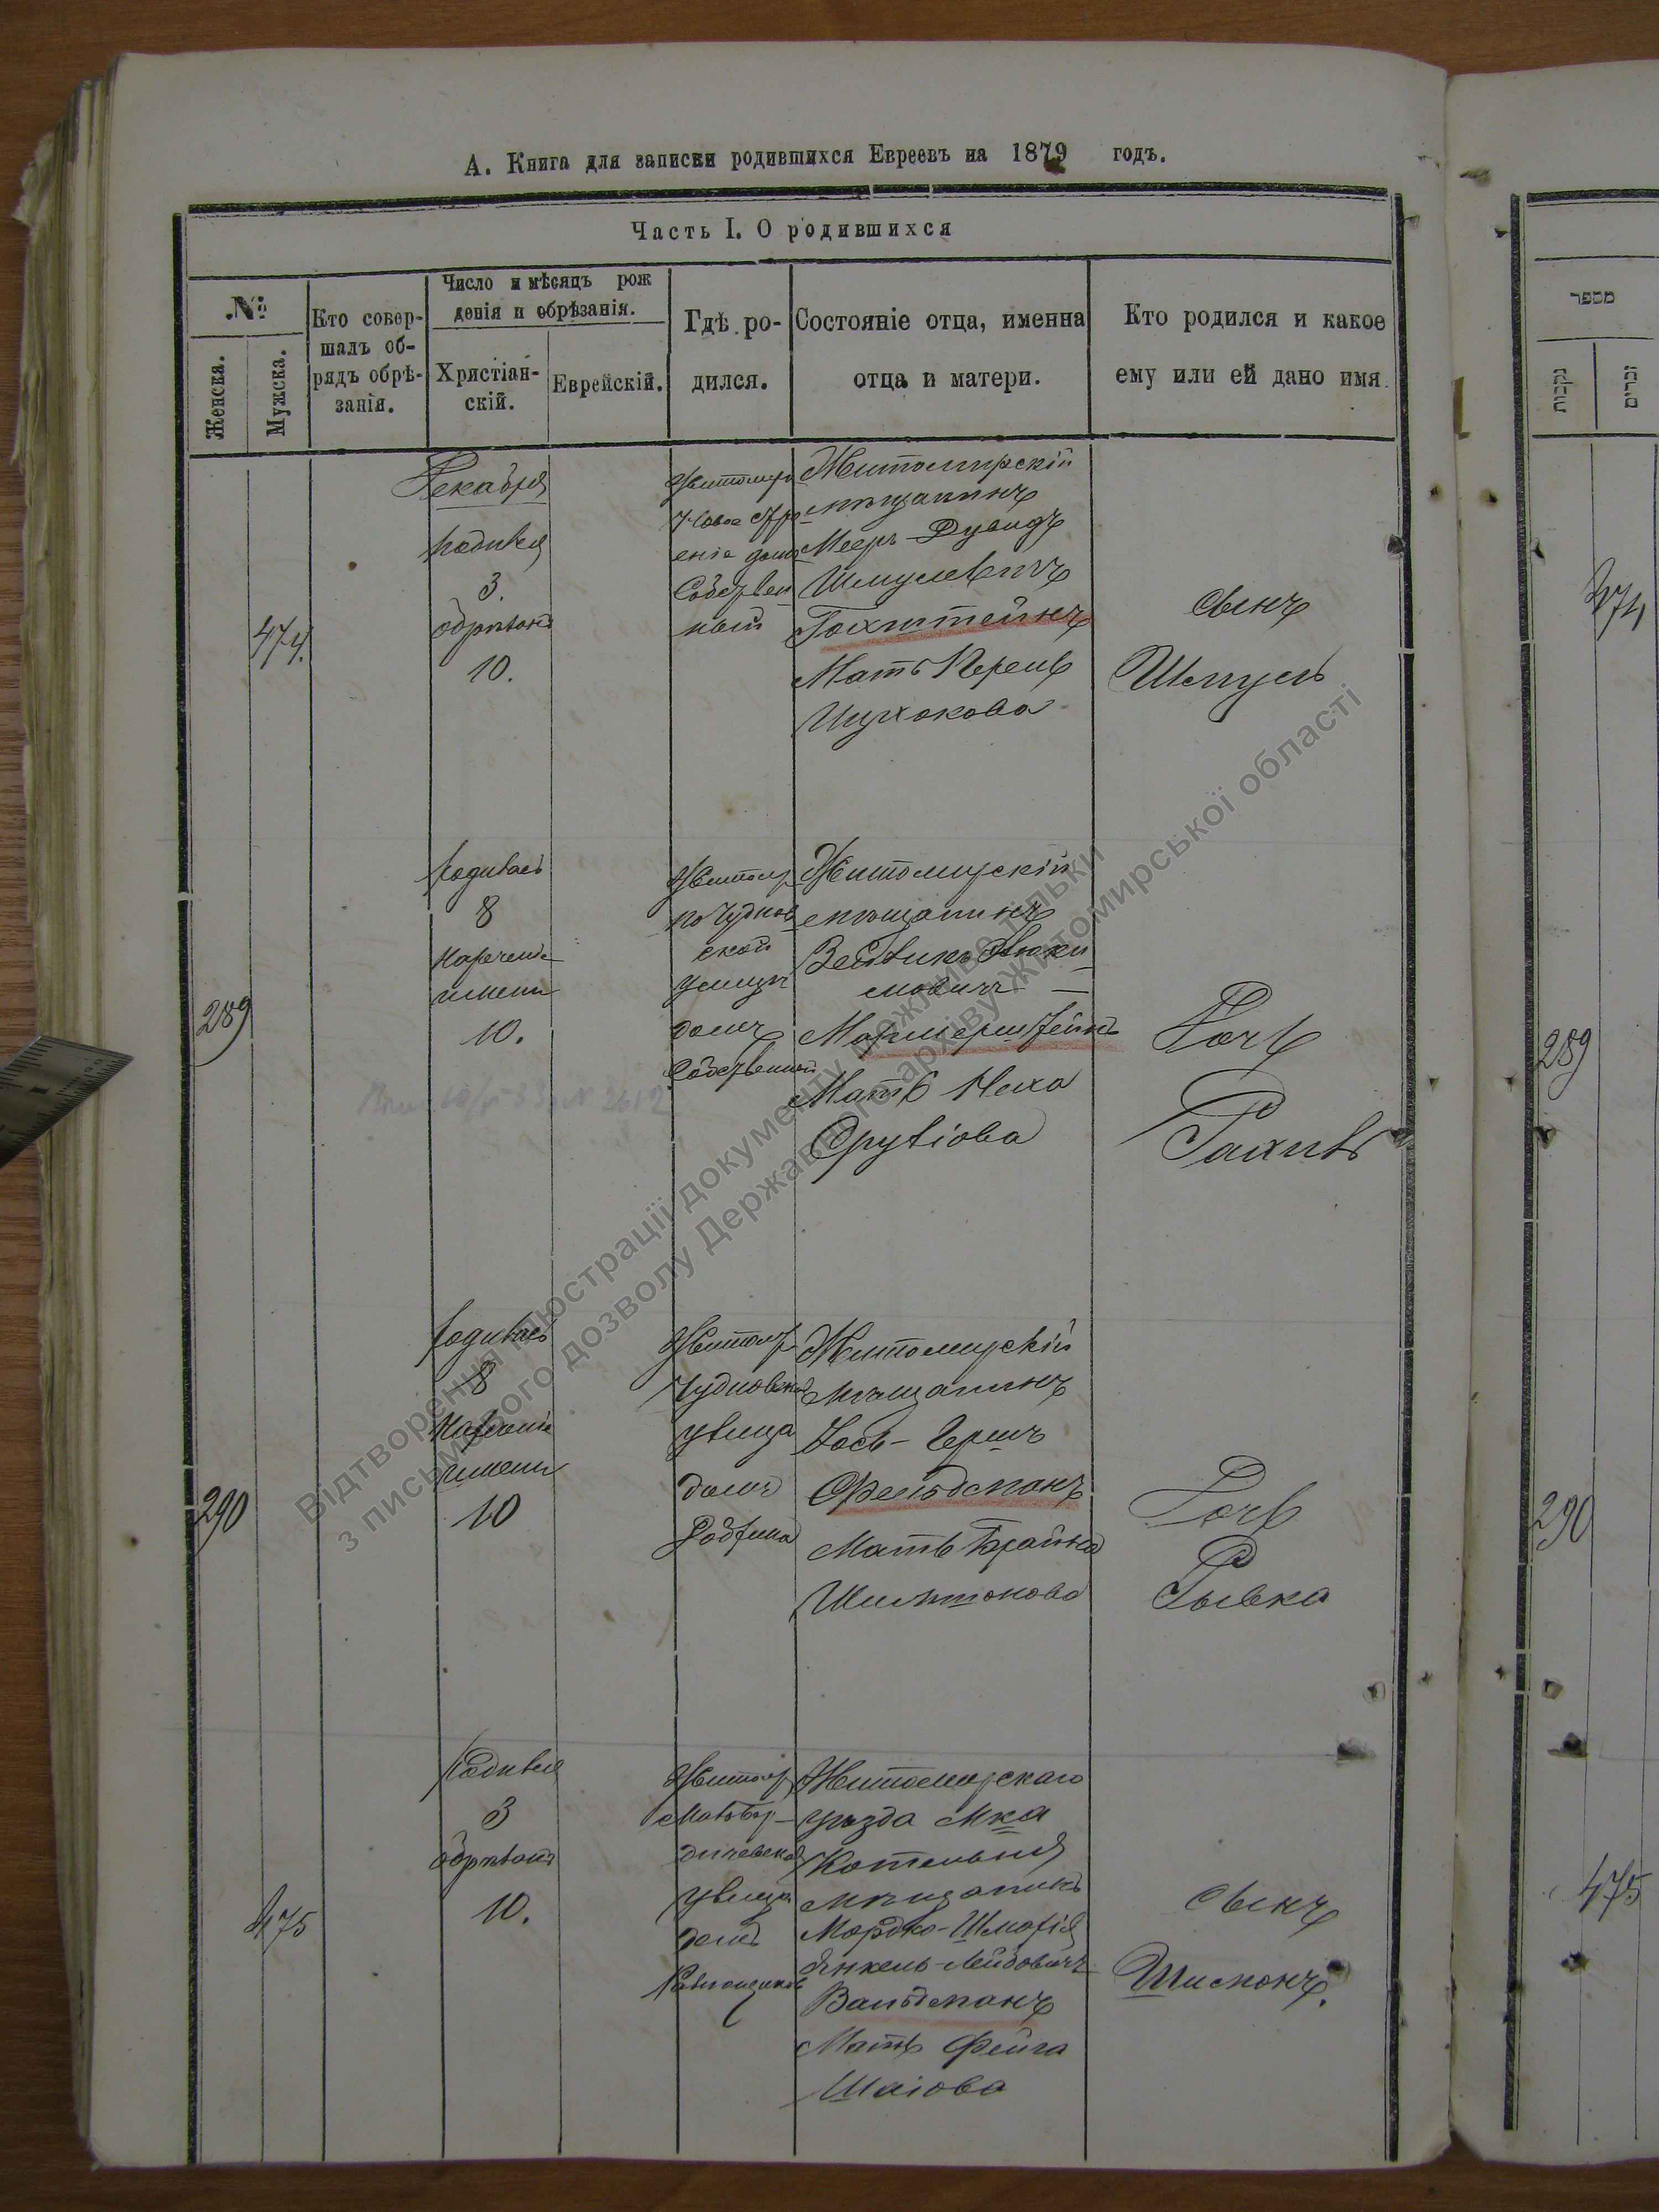 А. Книга для записки родившихся Евреевъ на 1879 годъ.
Часть I. О родившихся
№
Женска.
Мужска.
Кто совер-
шалъ об-
рядъ обрѣ-
занія.
Число и мѣсяцъ рож
денія и обрѣзанія.
Христіан-
скій.
Еврейскій.
Гдѣ ро-
дился.
Состояніе отца, именна
отца и матери.
Кто родился и какое
ему или ей дано имя.
474.
Декабря
родился
3.
обрѣзанъ
10.
Житомиръ
Новое стро
еніе домъ
Собствен
ный
Житомирскій
мѣщанинъ
Мееръ-Дувидъ
Шмулевичъ
Гохштейнъ
Мать Перель
Ицхокова
Сынъ
Шмуль
289
родилась
8
наречена
имени
10.
Житомир
по Чуднов
ской
улицы
домъ
Собственный
Житомирскій
мѣщанинъ
мовичъ
Мармерштейнъ
Мать Неха
Сруліова
Дочь
Рахиль
290
родилась
8
имени
10
Житомир
Чудновская
улица
домъ
Житомирскій
мѣщанинъ
Іось-Гершъ
Фельдманъ
Мать Брайна
Шимшонова
Дочь
Рывка
475
Родился
3
обрѣзанъ
10.
Житомир
МалоБер-
дичевская
улица
домъ
Житомирскаго
уѣзда м-ка
Котельня
мѣщанинъ
Мордко-Шмарія
Янкель-Лейбовичъ
Вальдманъ
Мать Фейга
Шаіова
Сынъ
Шимонъ.
מספר
נקבות
זכרים
474
289
290
475
Відтворення ілюстрації документу можливе тільки
з письмового дозволу Державного архіву Житомирської області